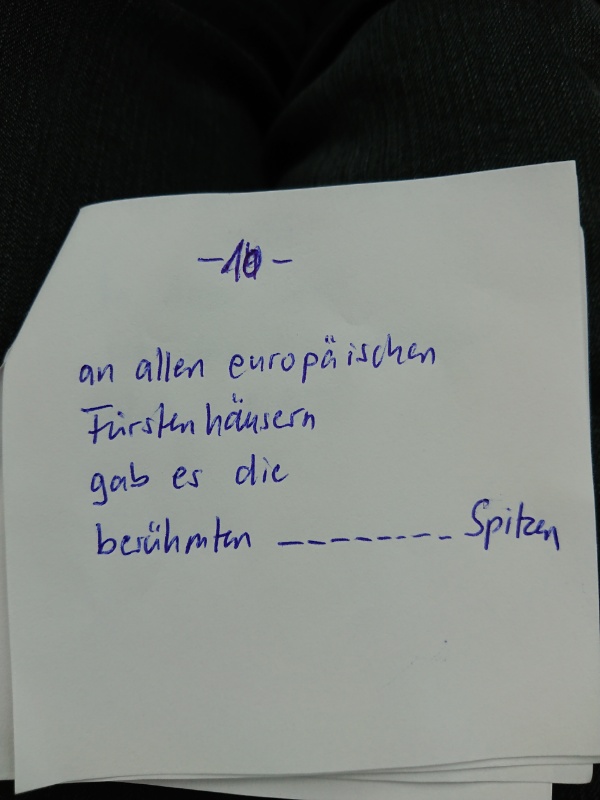 -10-
an allen europäischen
Fürstenhäusern
gab es die
berühmten -------- Spitzen